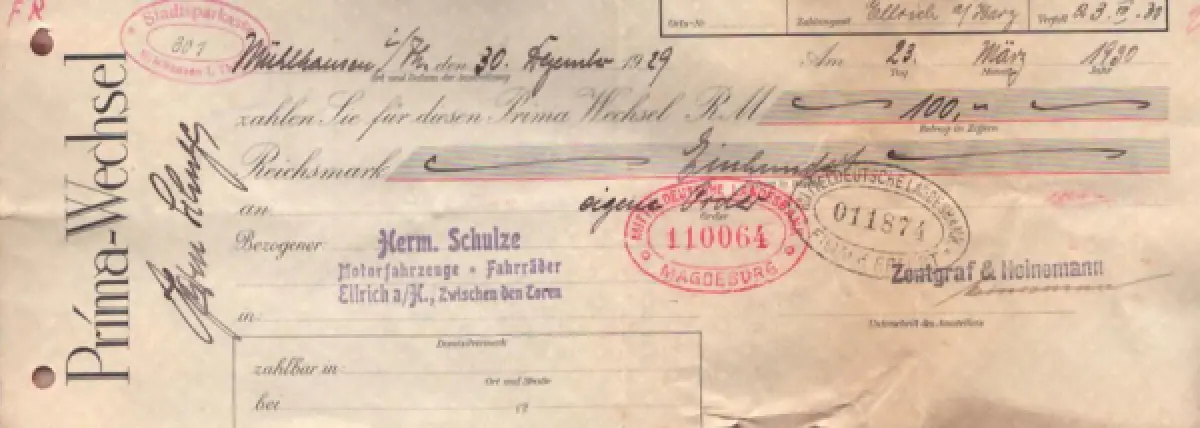 FR
Stadtsparkasse
801
Mühlhausen i. Th.
Prima-Wechsel
Herm Schulze
Orts-Nr Zahlungsort Ellrich a/Harz Verfall 23. III. 30
Mühlhausen i/Th. den 30. Dezember 1929 Am 23. März 1930
Ort und Datum der Ausstellung Tag Monat Jahr
zahlen Sie für diesen Prima Wechsel RM 100,-
Betrag in Ziffern
Reichsmark Einhundert
an eigene Order
Order
MITTELDEUTSCHE LANDESBANK
110064
MAGDEBURG
MITTELDEUTSCHE LANDESBANK
011874
FILIALE ERFURT
Bezogener Herm. Schulze
Motorfahrzeuge • Fahrräder
Ellrich a/H., Zwischen den Toren
Zentgraf & Heinemann
in
Unterschrift des Ausstellers
Domizilvermerk
zahlbar in
Ort und Straße
bei